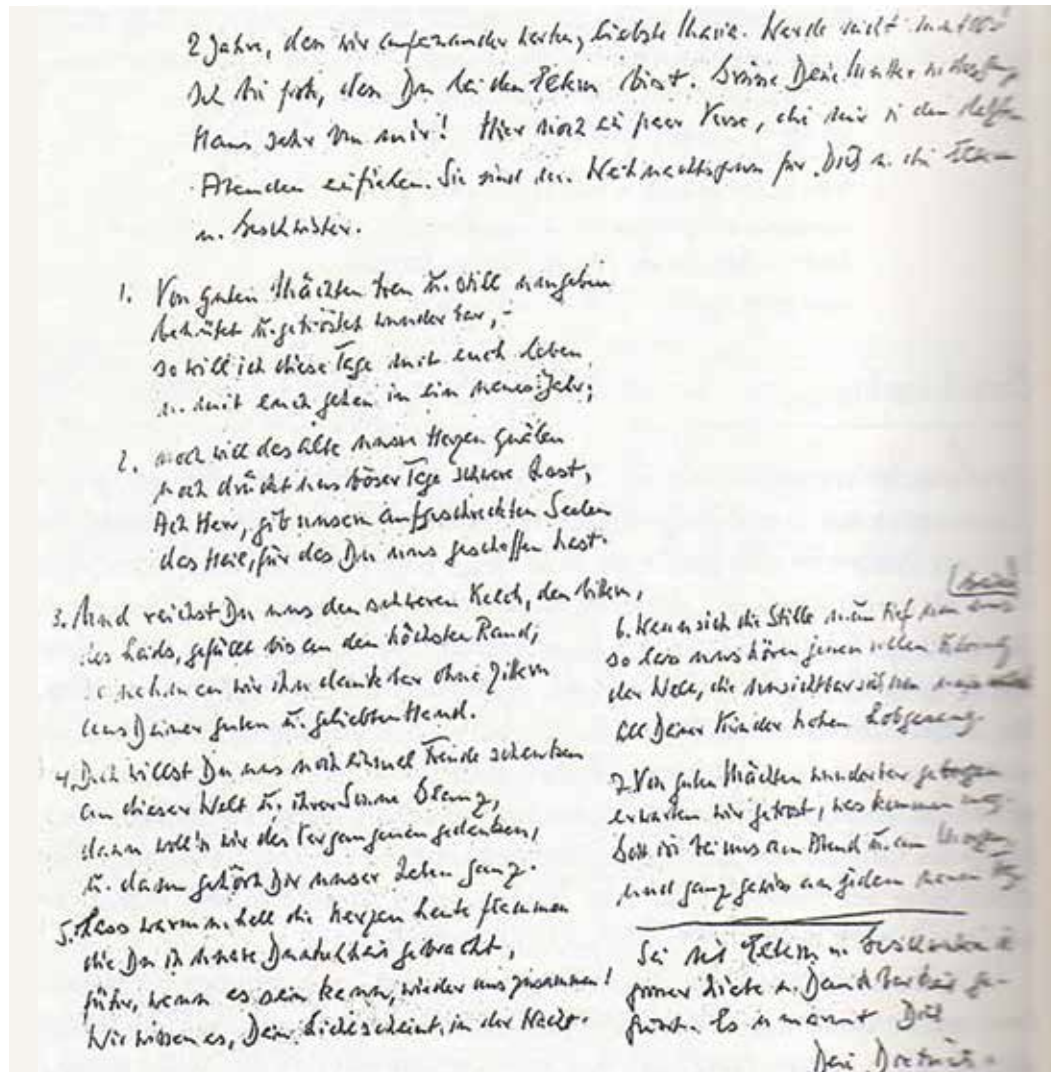 2 Jahre, dass wir aufeinander warten, liebste Maria. Werde nicht mutlos!
Ich bin froh, dass Du bei den Eltern bist. Grüsse Deine Mutter u. das ganze
Haus sehr von mir! Hier noch ein paar Verse, die mir in den letzten
Abenden einfielen. Sie sind der Weihnachtsgruss für Dich u. die Eltern
u. Geschwister.
1. Von guten Mächten treu u. still umgeben
behütet u. getröstet wunderbar, -
so will ich diese Tage mit euch leben
u. mit euch gehen in ein neues Jahr;
2. noch will das alte unsre Herzen quälen
noch drückt uns böser Tage schwere Last,
Ach Herr, gib unsern aufgeschreckten Seelen
das Heil, für das Du uns geschaffen hast.
3. Und reichst Du uns den schweren Kelch, den bittern,
des Leids, gefüllt bis an den höchsten Rand,
so nehmen wir ihn dankbar ohne Zittern
aus Deiner guten u. geliebten Hand.
4. Doch willst Du uns noch einmal Freude schenken
an dieser Welt u. ihrer Sonne Glanz,
dann woll'n wir des Vergangenen gedenken,
u. dann gehört Dir unser Leben ganz.
5. Lass warm u. hell die Kerzen heute flammen
die Du in unsre Dunkelheit gebracht,
führ, wenn es sein kann, wieder uns zusammen!
Wir wissen es, Dein Licht scheint in der Nacht.
6. Wenn sich die Stille nun tief um uns
so lass uns hören jenen vollen Klang
der Welt, die unsichtbar sich um uns weitet
all Deiner Kinder hohen Lobgesang.
7. Von guten Mächten wunderbar geborgen
erwarten wir getrost, was kommen mag.
Gott ist bei uns am Abend u. am Morgen
und ganz gewiss an jedem neuen Tag.
Sei mit Eltern u. Geschwistern in
grosser Liebe u. Dankbarkeit ge-
grüsst. Es umarmt Dich
Dein Dietrich.